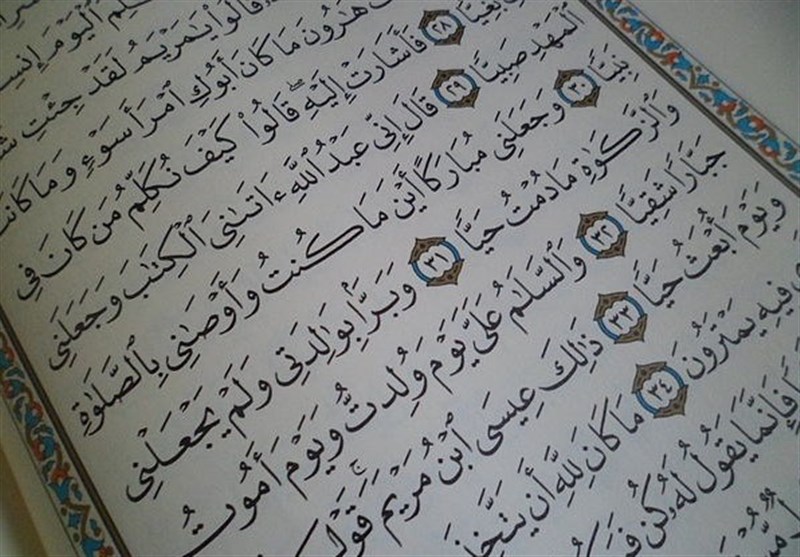 ٱلْيَوْمَ إِنسِ
قَالُوا۟ يَـٰمَرْيَمُ لَقَدْ جِئْتِ
هَـٰرُونَ مَا كَانَ أَبُوكِ ٱمْرَأَ سَوْءٍ وَمَا كَانَتْ
بَغِيًّا ٢٨ فَأَشَارَتْ إِلَيْهِ ۖ قَالُوا۟ كَيْفَ نُكَلِّمُ مَن كَانَ فِى
ٱلْمَهْدِ صَبِيًّا ٢٩ قَالَ إِنِّى عَبْدُ ٱللَّهِ ءَاتَىٰنِىَ ٱلْكِتَـٰبَ وَجَعَلَنِى
نَبِيًّا ٣٠ وَجَعَلَنِى مُبَارَكًا أَيْنَ مَا كُنتُ وَأَوْصَـٰنِى بِٱلصَّلَوٰةِ
وَٱلزَّكَوٰةِ مَا دُمْتُ حَيًّا ٣١ وَبَرًّۢا بِوَٰلِدَتِى وَلَمْ يَجْعَلْنِى
جَبَّارًا شَقِيًّا ٣٢ وَٱلسَّلَـٰمُ عَلَىَّ يَوْمَ وُلِدتُّ وَيَوْمَ أَمُوتُ
وَيَوْمَ أُبْعَثُ حَيًّا ٣٣ ذَٰلِكَ عِيسَى ٱبْنُ مَرْيَمَ ۚ قَوْلَ
فِيهِ يَمْتَرُونَ ٣٤ مَا كَانَ لِلَّهِ أَن يَتَّخِذَ
فَإِنَّمَا يَقُولُ لَهُۥ كُن